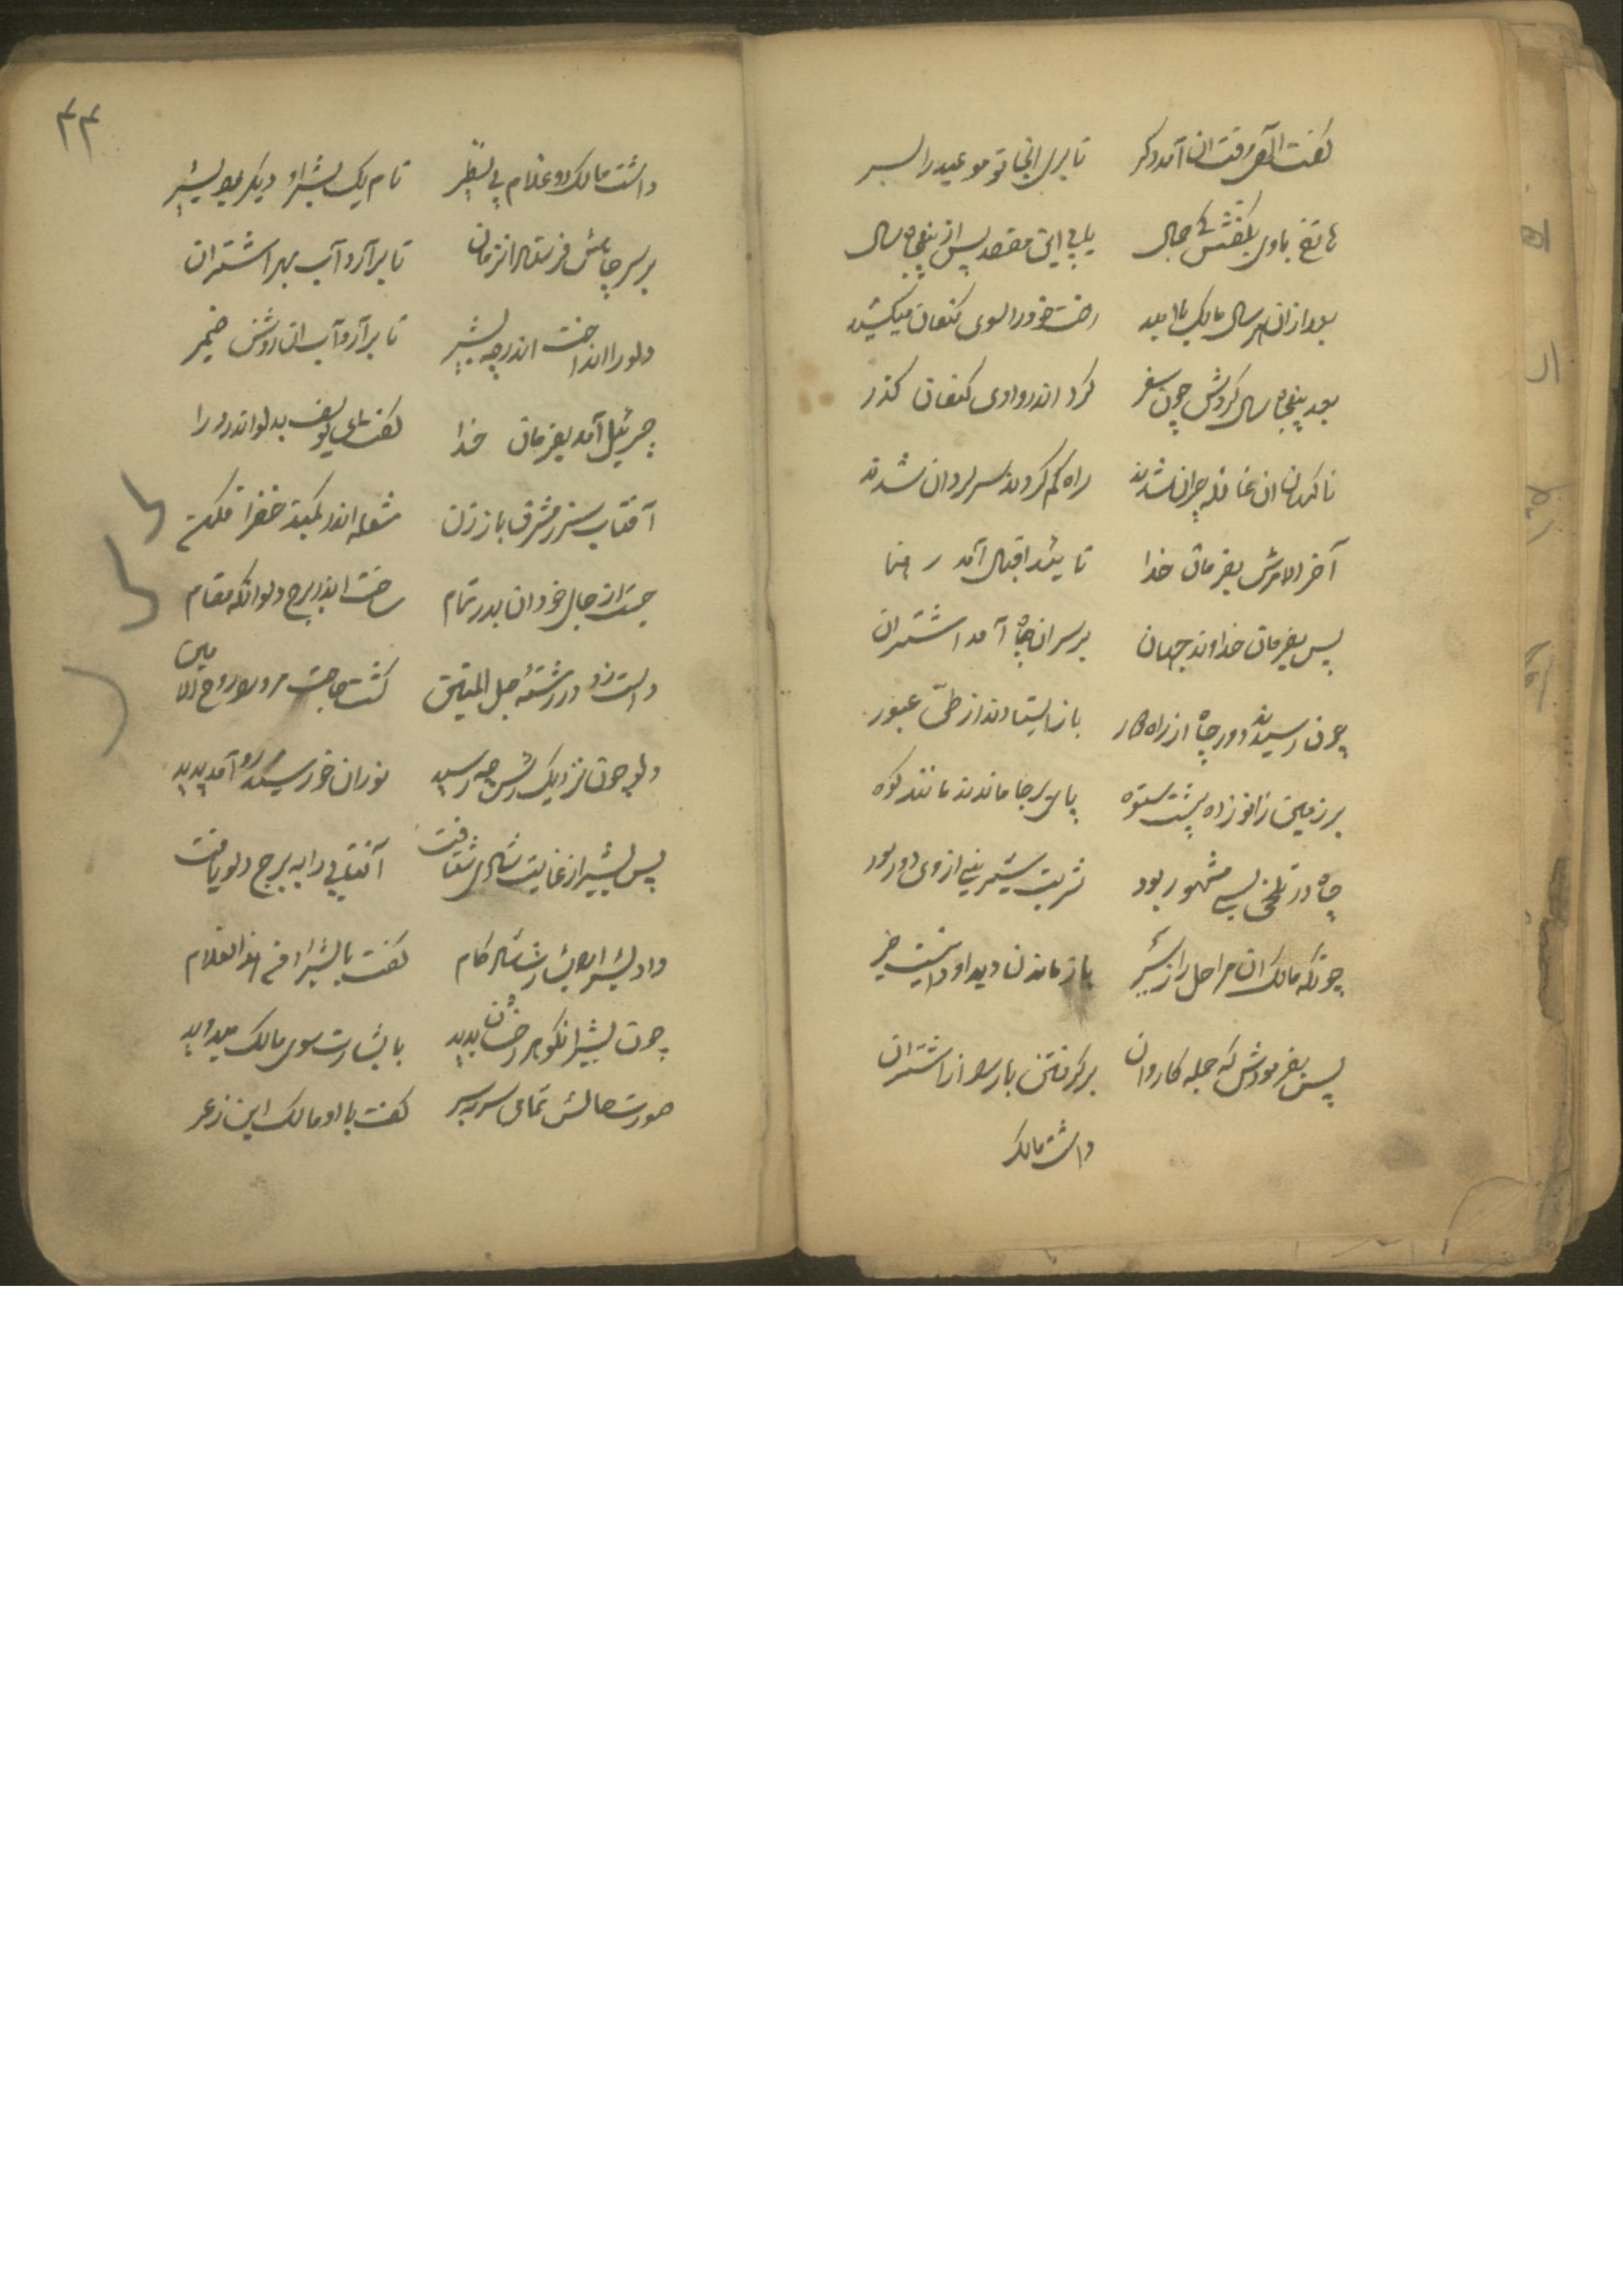 گفت آنوقت ان آمد دگر تا بری انجا تو موعید را بسر
هاتفی باوی بگفتش کی جمال یابی این مقصد پس از پنجاه سال
بعد ازان هر سال مالک با امید رخت خود را سوی کنعان میکشید
بعد پنجاه سال کردش چون سفر کرد اندر وادی کنعان کذر
ناکهان ان قافله حیران شدند راه کم کردند سرکردان شدند
آخر الامرش بفرمان خدا تا اقبال آمد رهنما
پس بفرمان خداوند جهان بر سر ان چاه آمد اشتران
چون رسیدند دور چاه از راه باز ایستادند از طی عبور
بر زمین زانو زده پشت ستوه پای بر جا ماندند مانند کوه
چاه در تلخی بسی مشهور بود شربت شیرینی از وی دور بود
چونکه مالک ان مراحل را ز سیر باز ماندن دید او دانست خیر
پس بفرمودش که جمله کاروان بر گرفتن بارها از اشتران
داشت مالک
۴۴
داشت مالک دو غلام بی نظیر نام یک بشرا و دیگر بود بشیر
بر سر چاهش فرستاد انزمان تا برآرد آب بهر اشتران
دلو را انداخت اندر چه بشیر تا برآرد آب ان روشن ضمیر
جبرئیل آمد بفرمان خدا گفت ای یوسف بدلو اندر درا
آفتاب سر ز مشرق باز زن شعله اندر کنبد خضرا فکن
جست از جا خود ان بدر تمام ساخت اندر برج دلو انکه مقام
دست زد در رشته حبل المتین گشت مر او روح الامین
دلو چون نزدیک چه رسید نور ان خورشید رو آمد پدید
پس بشیر از غایت شادی شتافت آفتابی را به برج دلو یافت
داد بشرا را بشارت شادکام گفت یا بشرا فی هذا الغلام
چون بشیر انکوهر رخشان بدید با بشارت سوی مالک میدوید
صورت حالش تمامی سر بسر گفت با او مالک ابن زعر